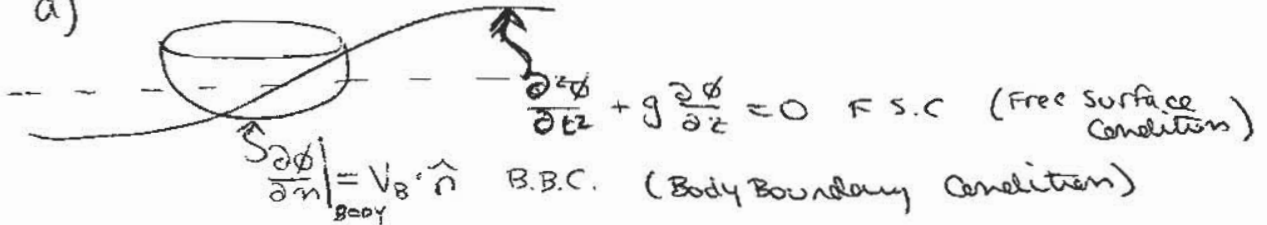 a)
∂²φ/∂t² + g ∂φ/∂z = 0 F.S.C (Free Surface Condition)
∂φ/∂n|BODY = V_B · n̂ B.B.C. (Body Boundary Condition)